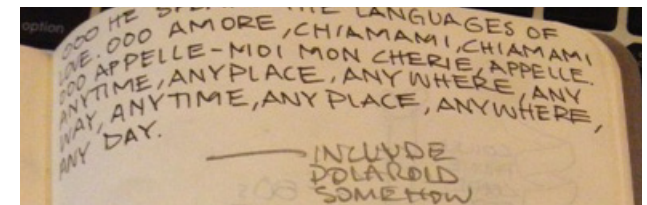 option
OOO HE SPEAKS THE LANGUAGES OF
LOVE. OOO AMORE, CHIAMAMI, CHIAMAMI
OOO APPELLE-MOI MON CHERIE, APPELLE.
ANYTIME, ANYPLACE, ANYWHERE, ANY
WAY, ANYTIME, ANY PLACE, ANYWHERE,
ANY DAY.
INCLUDE
POLAROID
SOMEHOW